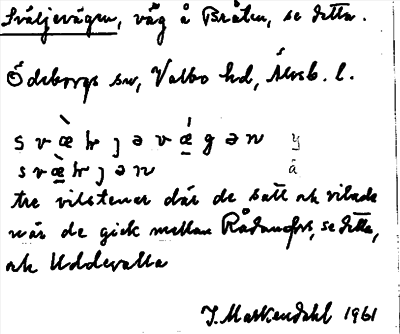 Sväljevägen, väg å Bråten, se detta.
Ödeborgs sn, Valbo hd, Älvsb. l.
s v æ̀ lr j ə v ǽ g ə n y
s v æ̀ lr j ə n ä
tre vilstenar där de satt och vilade
när de gick mellan Rådanefors, se detta,
och Uddevalla
J. Markendahl 1961